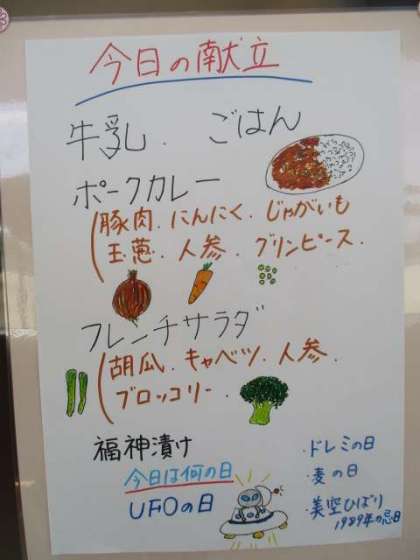 今日の献立
牛乳. ごはん
ポークカレー
豚肉. にんにく. じゃがいも
玉葱. 人参. グリンピース.
フレンチサラダ
胡瓜. キャベツ. 人参.
ブロッコリー
福神漬け
今日は何の日
UFOの日
・ドレミの日
・麦の日
・美空ひばり
1989年の忌日